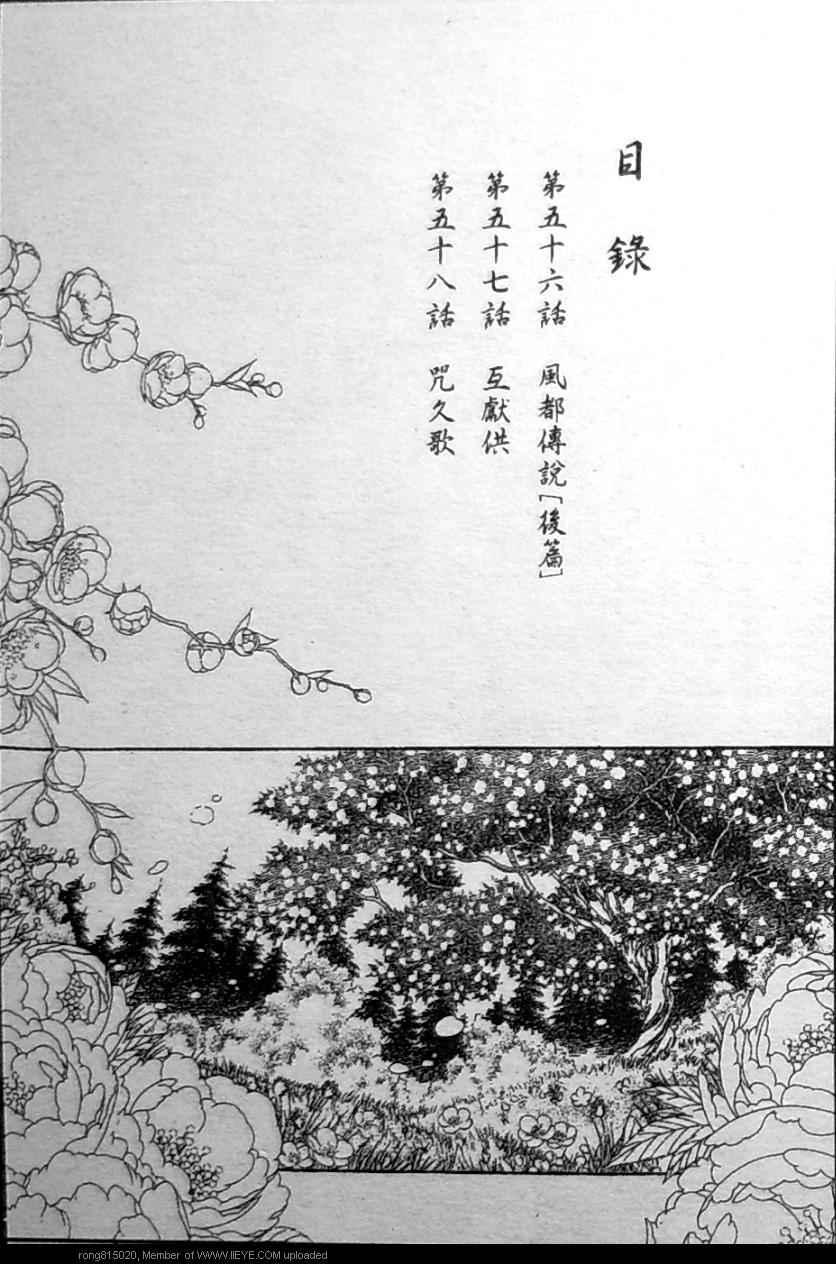 目錄
第五十六話 風都傳說［後篇］
第五十七話 互獻供
第五十八話 咒久歌
rong815020, Member of WWW.IIEYE.COM uploaded